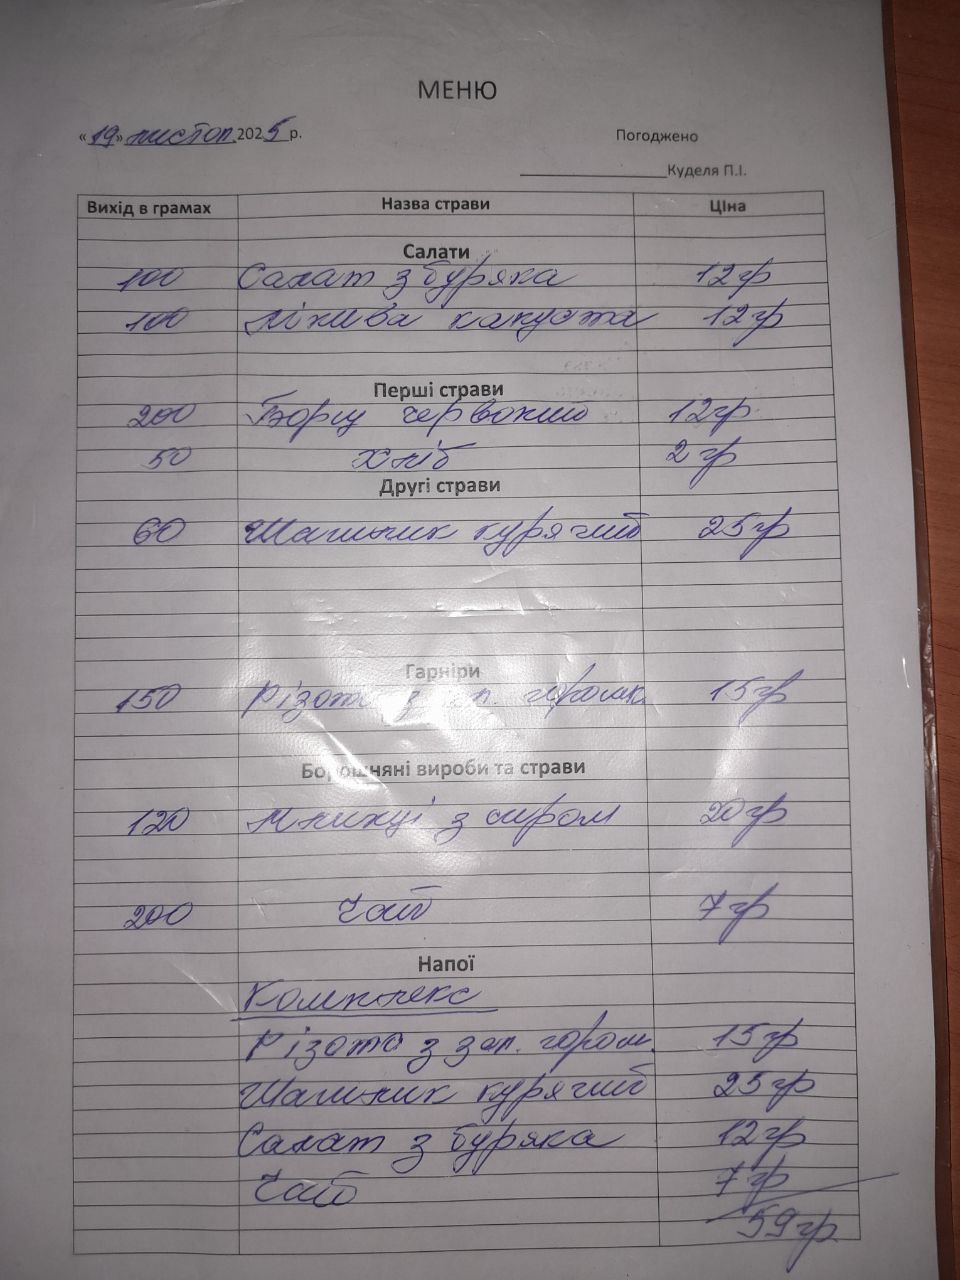 МЕНЮ
«19» листоп. 2025 р.
Погоджено
Куделя П.І.
Вихід в грамах Назва страви Ціна
Салати
100 Салат з буряка 12гр
100 Лінива капуста 12гр
Перші страви
200 Борщ червоний 12гр
50 хліб 2гр
Другі страви
60 Шашлик курячий 25гр
Гарніри
150 Різото з зел. горошк. 15гр
Борошняні вироби та страви
120 Млинці з сиром 20гр
200 Чай 7гр
Напої
Комплекс
Різото з зел. гором. 15гр
Шашлик курячий 25гр
Салат з буряка 12гр
Чай 7гр
59гр